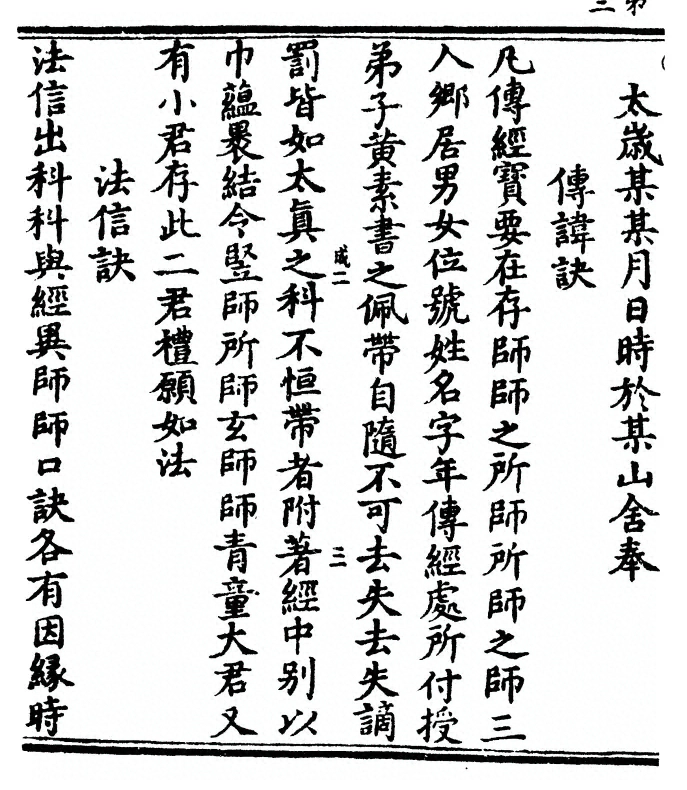 太歲某某月日時於某山舍奉
傳諱訣
凡傳經寶要在存師師之所師所師之師三
人鄉居男女位號姓名字年傳經處所付授
弟子黃素書之佩帶自隨不可去失去失謫
罰皆如太眞之科不恒帶者附著經中別以
咸二
三
巾蘊褁結令竪師所師玄師師青童大君又
有小君存此二君禮願如法
法信訣
法信出科科與經異師師口訣各有因緣時